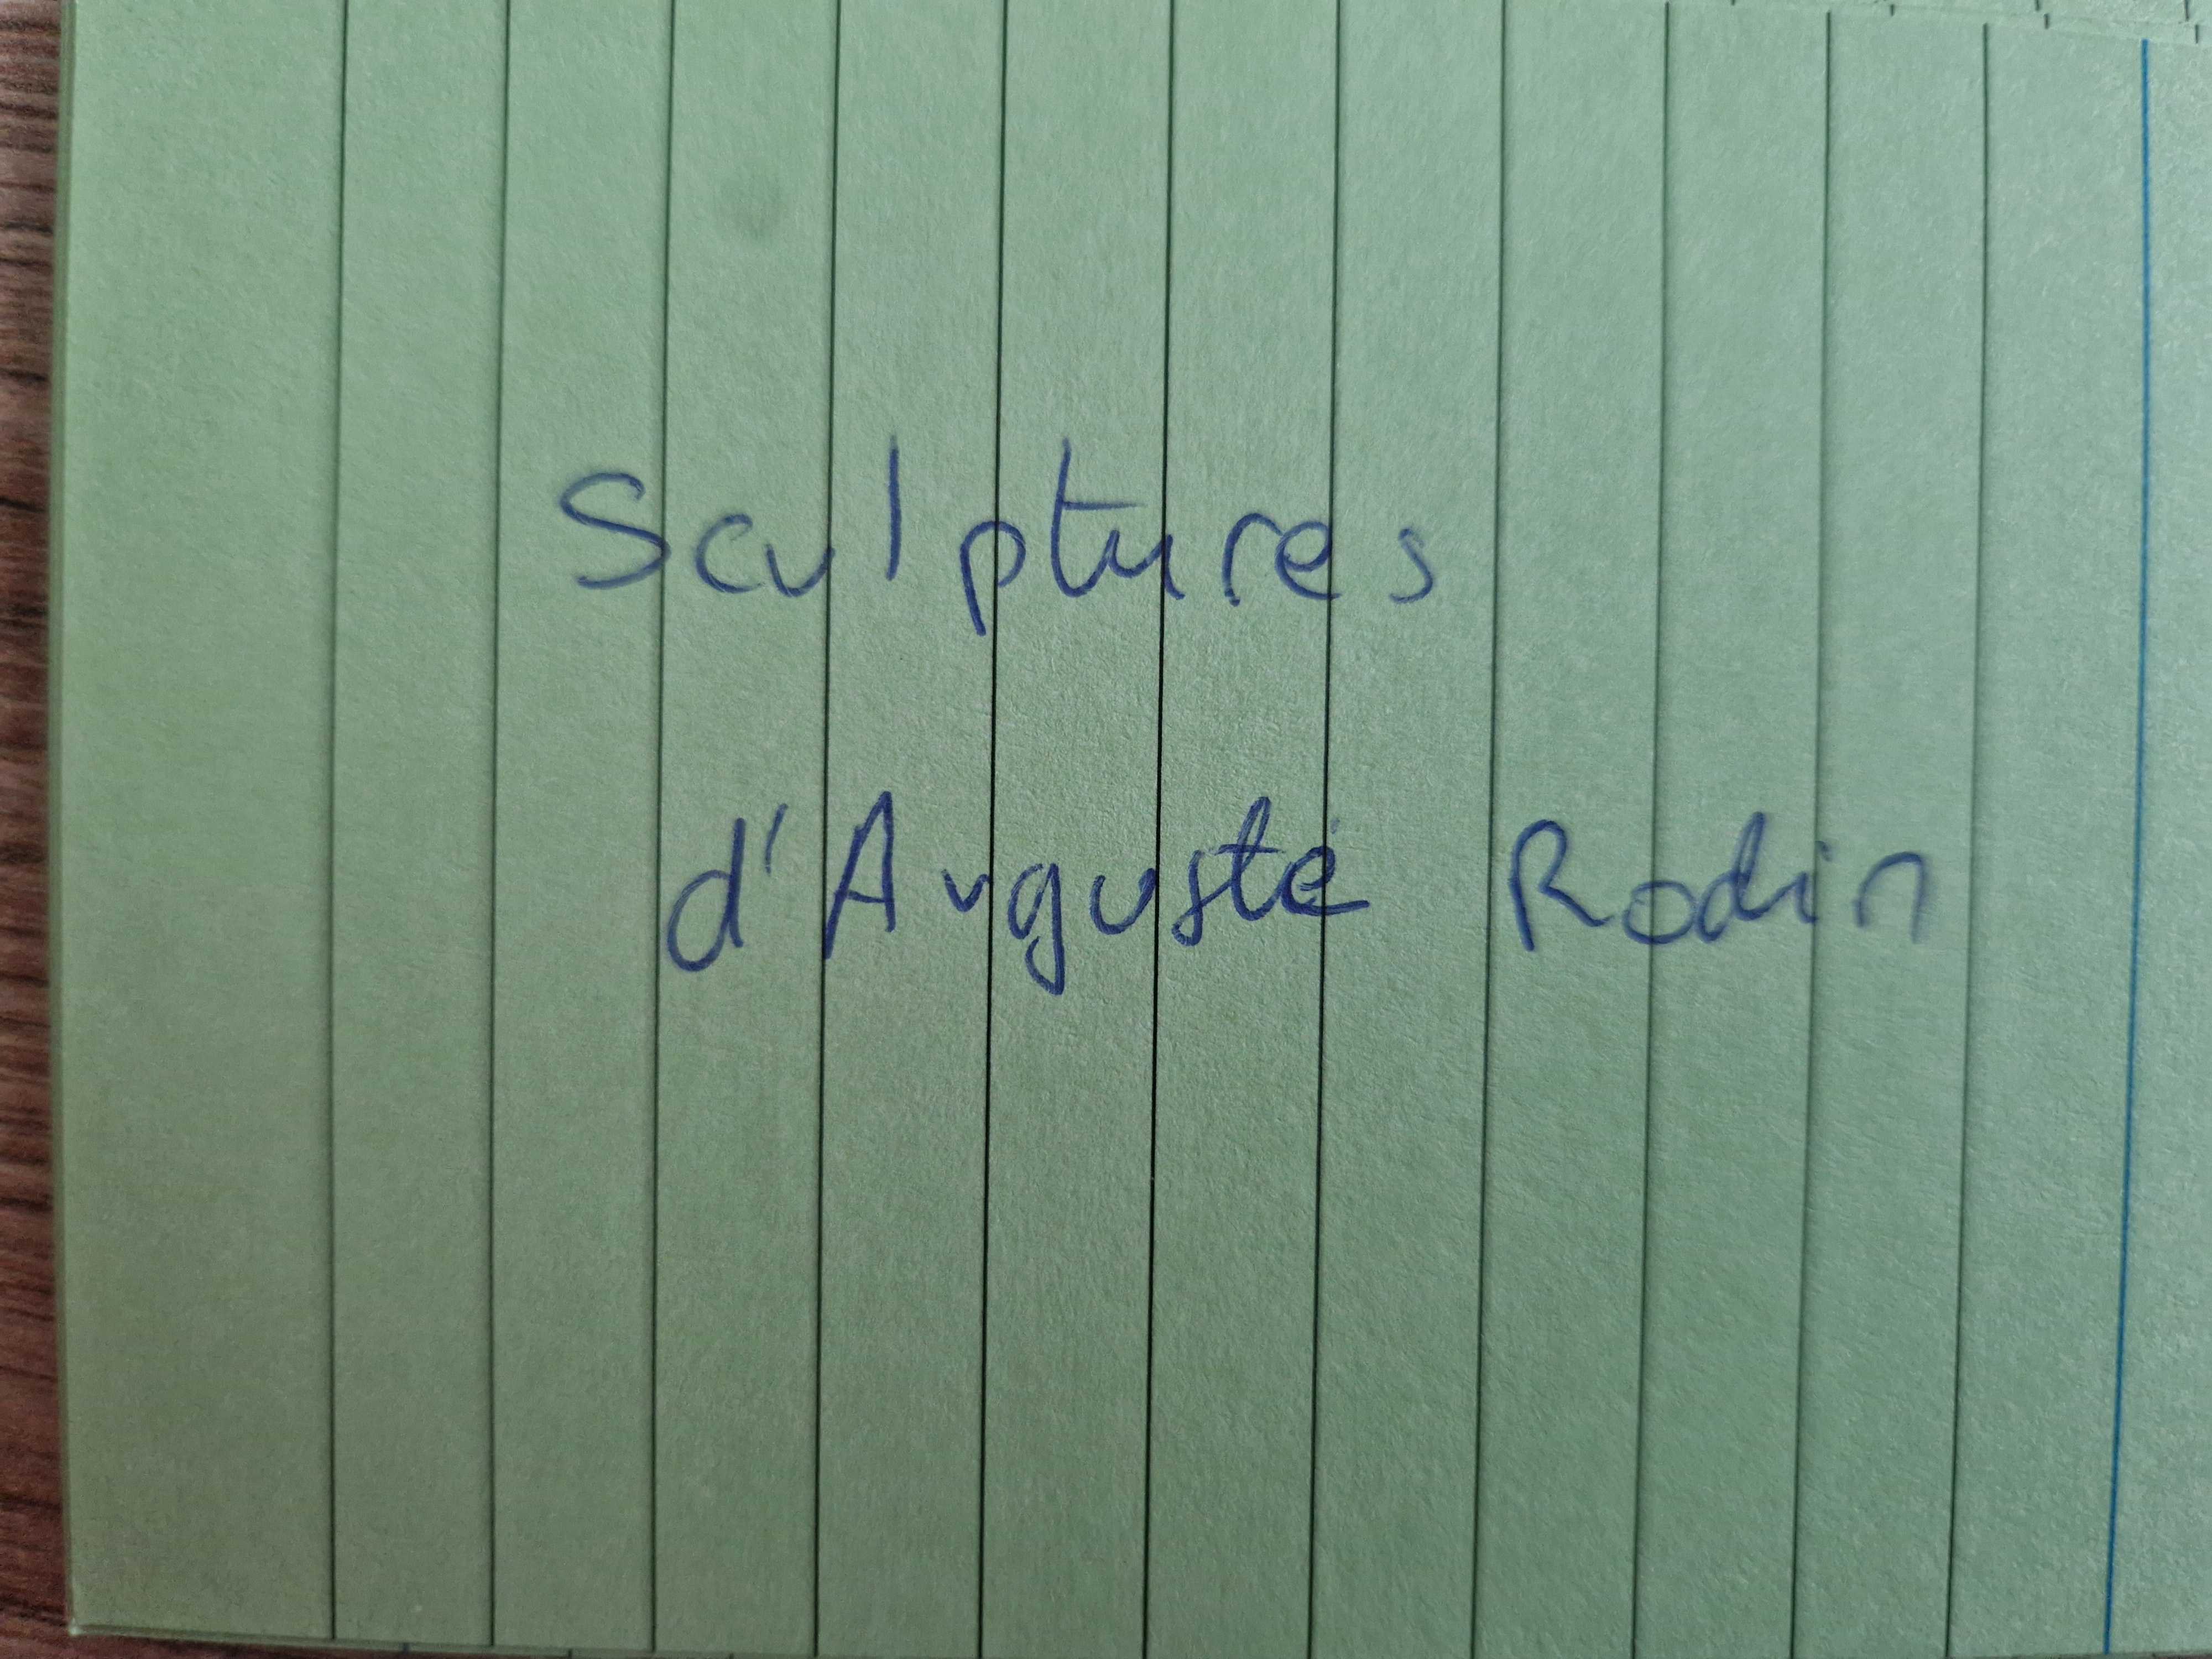 Sculptures
d'Auguste Rodin